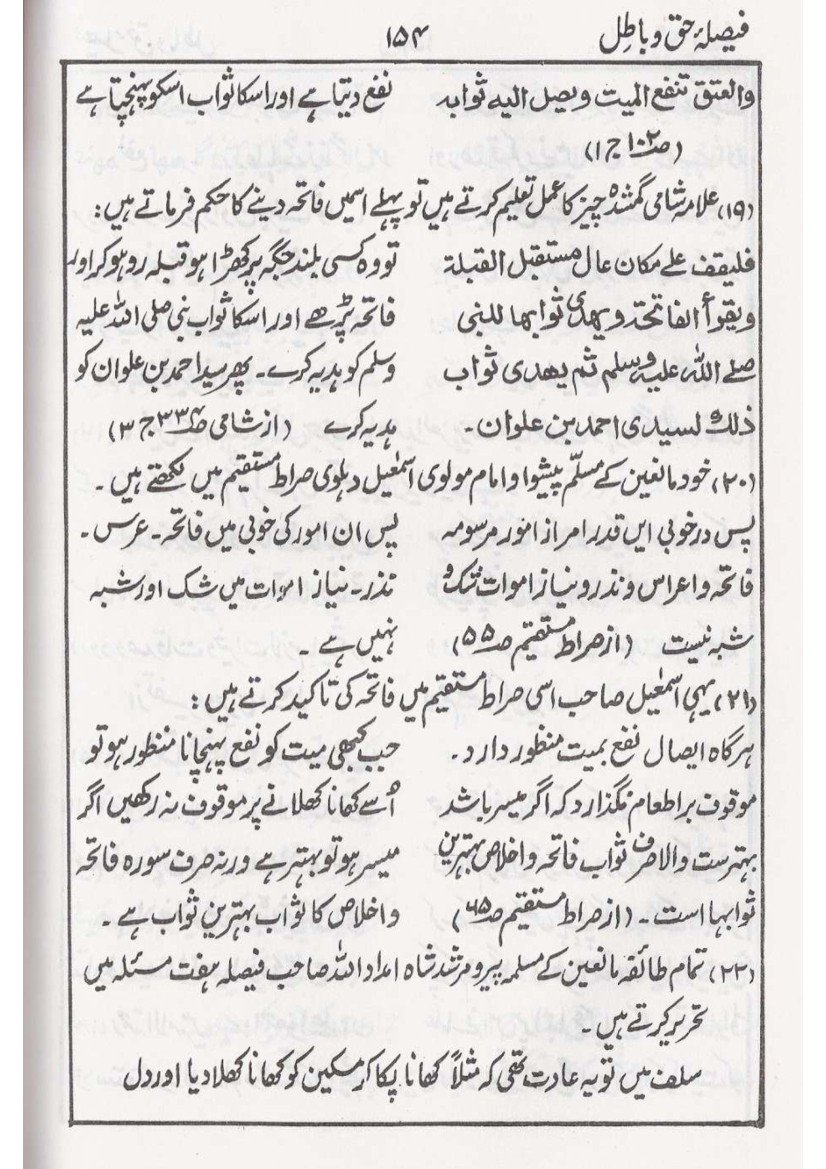 فیصلۂ حق و باطل ۱۵۴
والعتق تنفع المیت ویصل الیه ثوابه نفع دیتا ہے اور اسکا ثواب اسکو پہنچتا ہے
(صـ۱۰۲ ج۱)
(۱۹) علامہ شامی گمشدہ چیز کا عمل تعلیم کرتے ہیں تو پہلے اسمیں فاتحہ دینے کا حکم فرماتے ہیں :
فلیقف علے مکان عال مستقبل القبلة تو وہ کسی بلند جگہ پر کھڑا ہو قبلہ رو ہو کر اور
ویقرأ الفاتحة ویهدی ثوابها للنبی فاتحہ پڑھے اور اسکا ثواب نبی صلی اللہ علیہ
صلے الله علیه وسلم ثم یهدی ثواب وسلم کو ہدیہ کرے۔ پھر سید احمد بن علوان کو
ذلك لسیدی احمد بن علوان۔ ہدیہ کرے (از شامی صـ۳۳۴ ج۳)
(۲۰) خود مانعین کے مسلّم پیشوا و امام مولوی اسمٰعیل دہلوی صراط مستقیم میں لکھتے ہیں۔
پس در خوبی ایں قدر امر از امور مرسومہ پس ان امور کی خوبی میں فاتحہ۔ عرس۔
فاتحہ و اعراس و نذر و نیاز اموات شک و نذر۔ نیاز اموات میں شک اور شبہ
شبہ نیست (از صراط مستقیم صـ۵۵) نہیں ہے۔
(۲۱) یہی اسمٰعیل صاحب اسی صراط مستقیم میں فاتحہ کی تاکید کرتے ہیں :
ہرگاہ ایصال نفع بمیت منظور دارد۔ جب کبھی میت کو نفع پہنچانا منظور ہو تو
موقوف بر اطعام نگذارد کہ اگر میسر باشد اُسے کھانا کھلانے پر موقوف نہ رکھیں اگر
بہترست والا صرف ثواب فاتحہ و اخلاص بہترین میسر ہو تو بہتر ہے ورنہ صرف سورہ فاتحہ
ثوابہا است۔ (از صراط مستقیم صـ۶۵) و اخلاص کا ثواب بہترین ثواب ہے۔
(۲۲) تمام طائفہ مانعین کے مسلمہ پیر و مرشد شاہ امداد اللہ صاحب فیصلہ ہفت مسئلہ میں
تحریر کرتے ہیں۔
سلف میں تو یہ عادت تھی کہ مثلاً کھانا پکا کر مسکین کو کھانا کھلا دیا اور دل